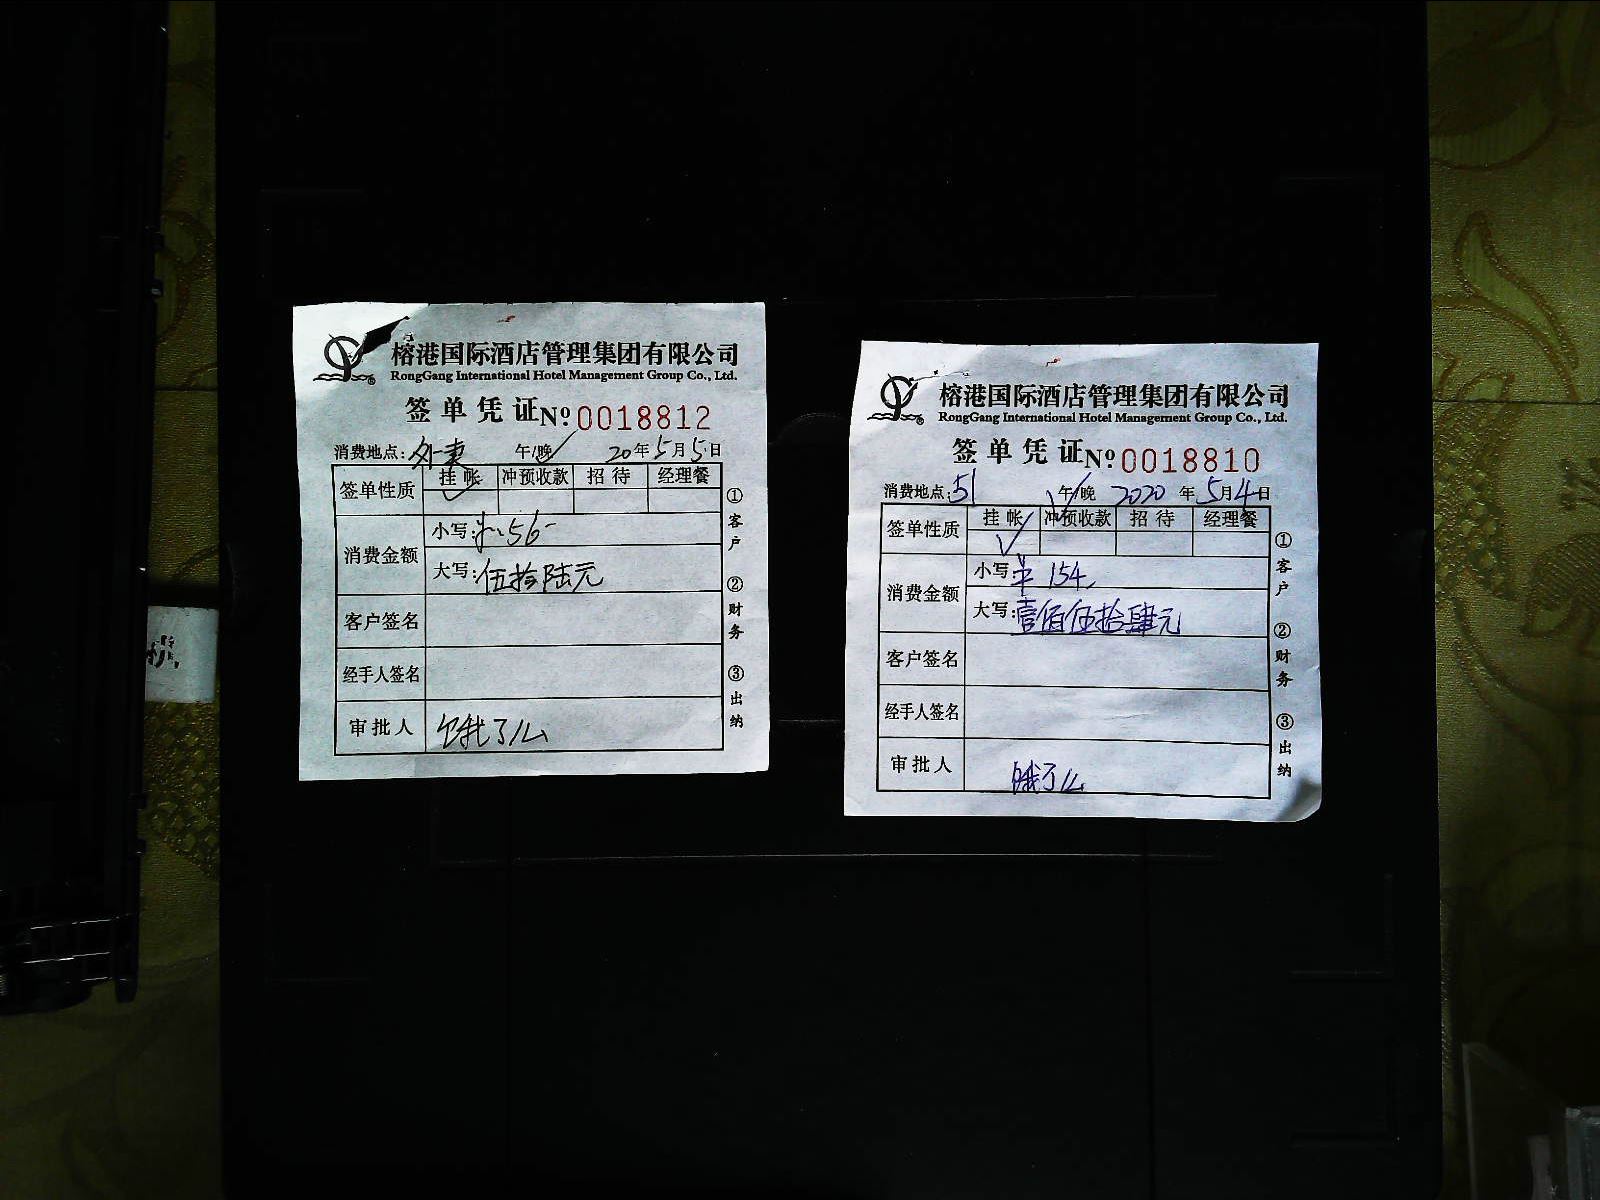 榕港国际酒店管理集团有限公司
RongGang International Hotel Management Group Co., Ltd.
签单凭证 Nº 0018812
消费地点: 外卖 午/晚 20年5月5日
签单性质 挂帐 冲预收款 招待 经理餐
消费金额 小写: ¥:56-
大写: 伍拾陆元
客户签名
经手人签名
审批人 饿了么
①客户 ②财务 ③出纳
榕港国际酒店管理集团有限公司
RongGang International Hotel Management Group Co., Ltd.
签单凭证 Nº 0018810
消费地点: 51 午/晚 2020年5月4日
签单性质 挂帐 冲预收款 招待 经理餐
消费金额 小写: ¥ 154
大写: 壹佰伍拾肆元
客户签名
经手人签名
审批人 饿了么
①客户 ②财务 ③出纳